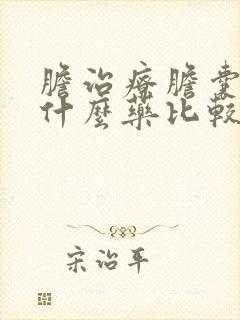 膽治療膽囊
什麼藥比較
宋治平